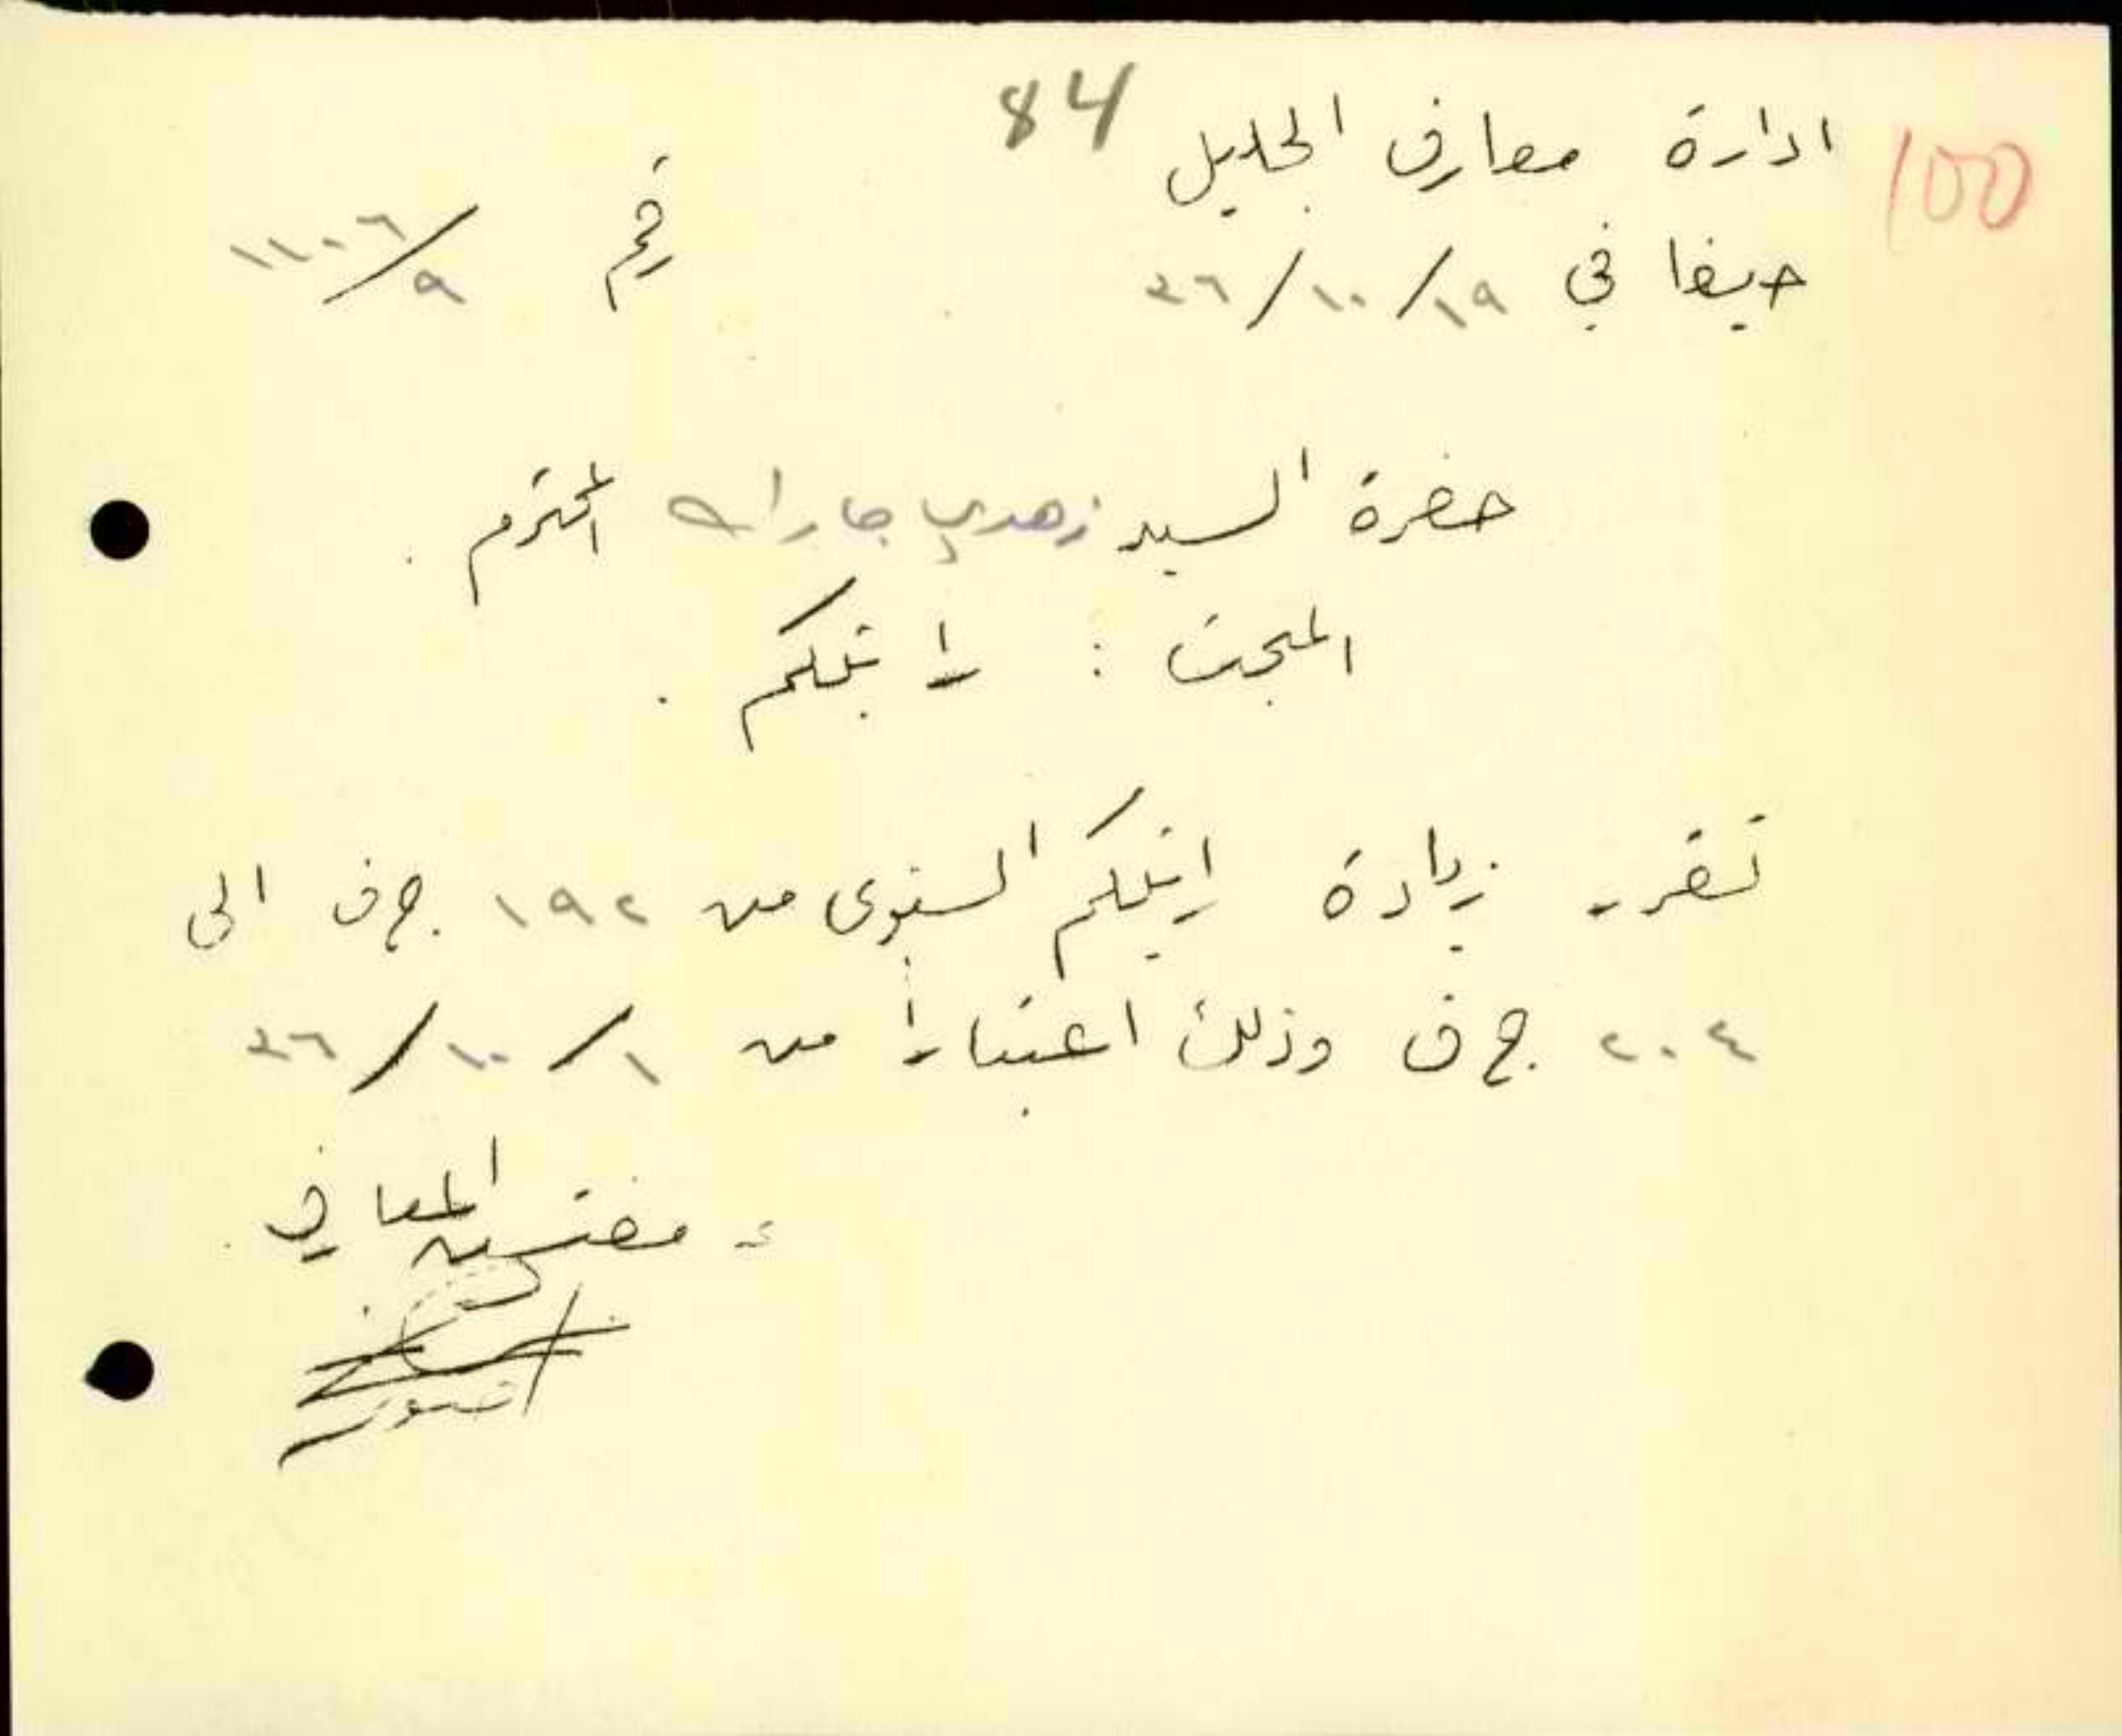 84
100
ادارة معارف الجليل
حيفا في ١٩/١٠/٣٦ رقم ١١٠٦/٩
حضرة السيد زهدي جار الله المحترم .
المبحث : راتبكم .
تقرر زيادة راتبكم السنوى من ١٩٢ ج.ف الى
٢٠٤ ج.ف وذلك اعتباراً من ١/١٠/٣٦
مفتش المعارف